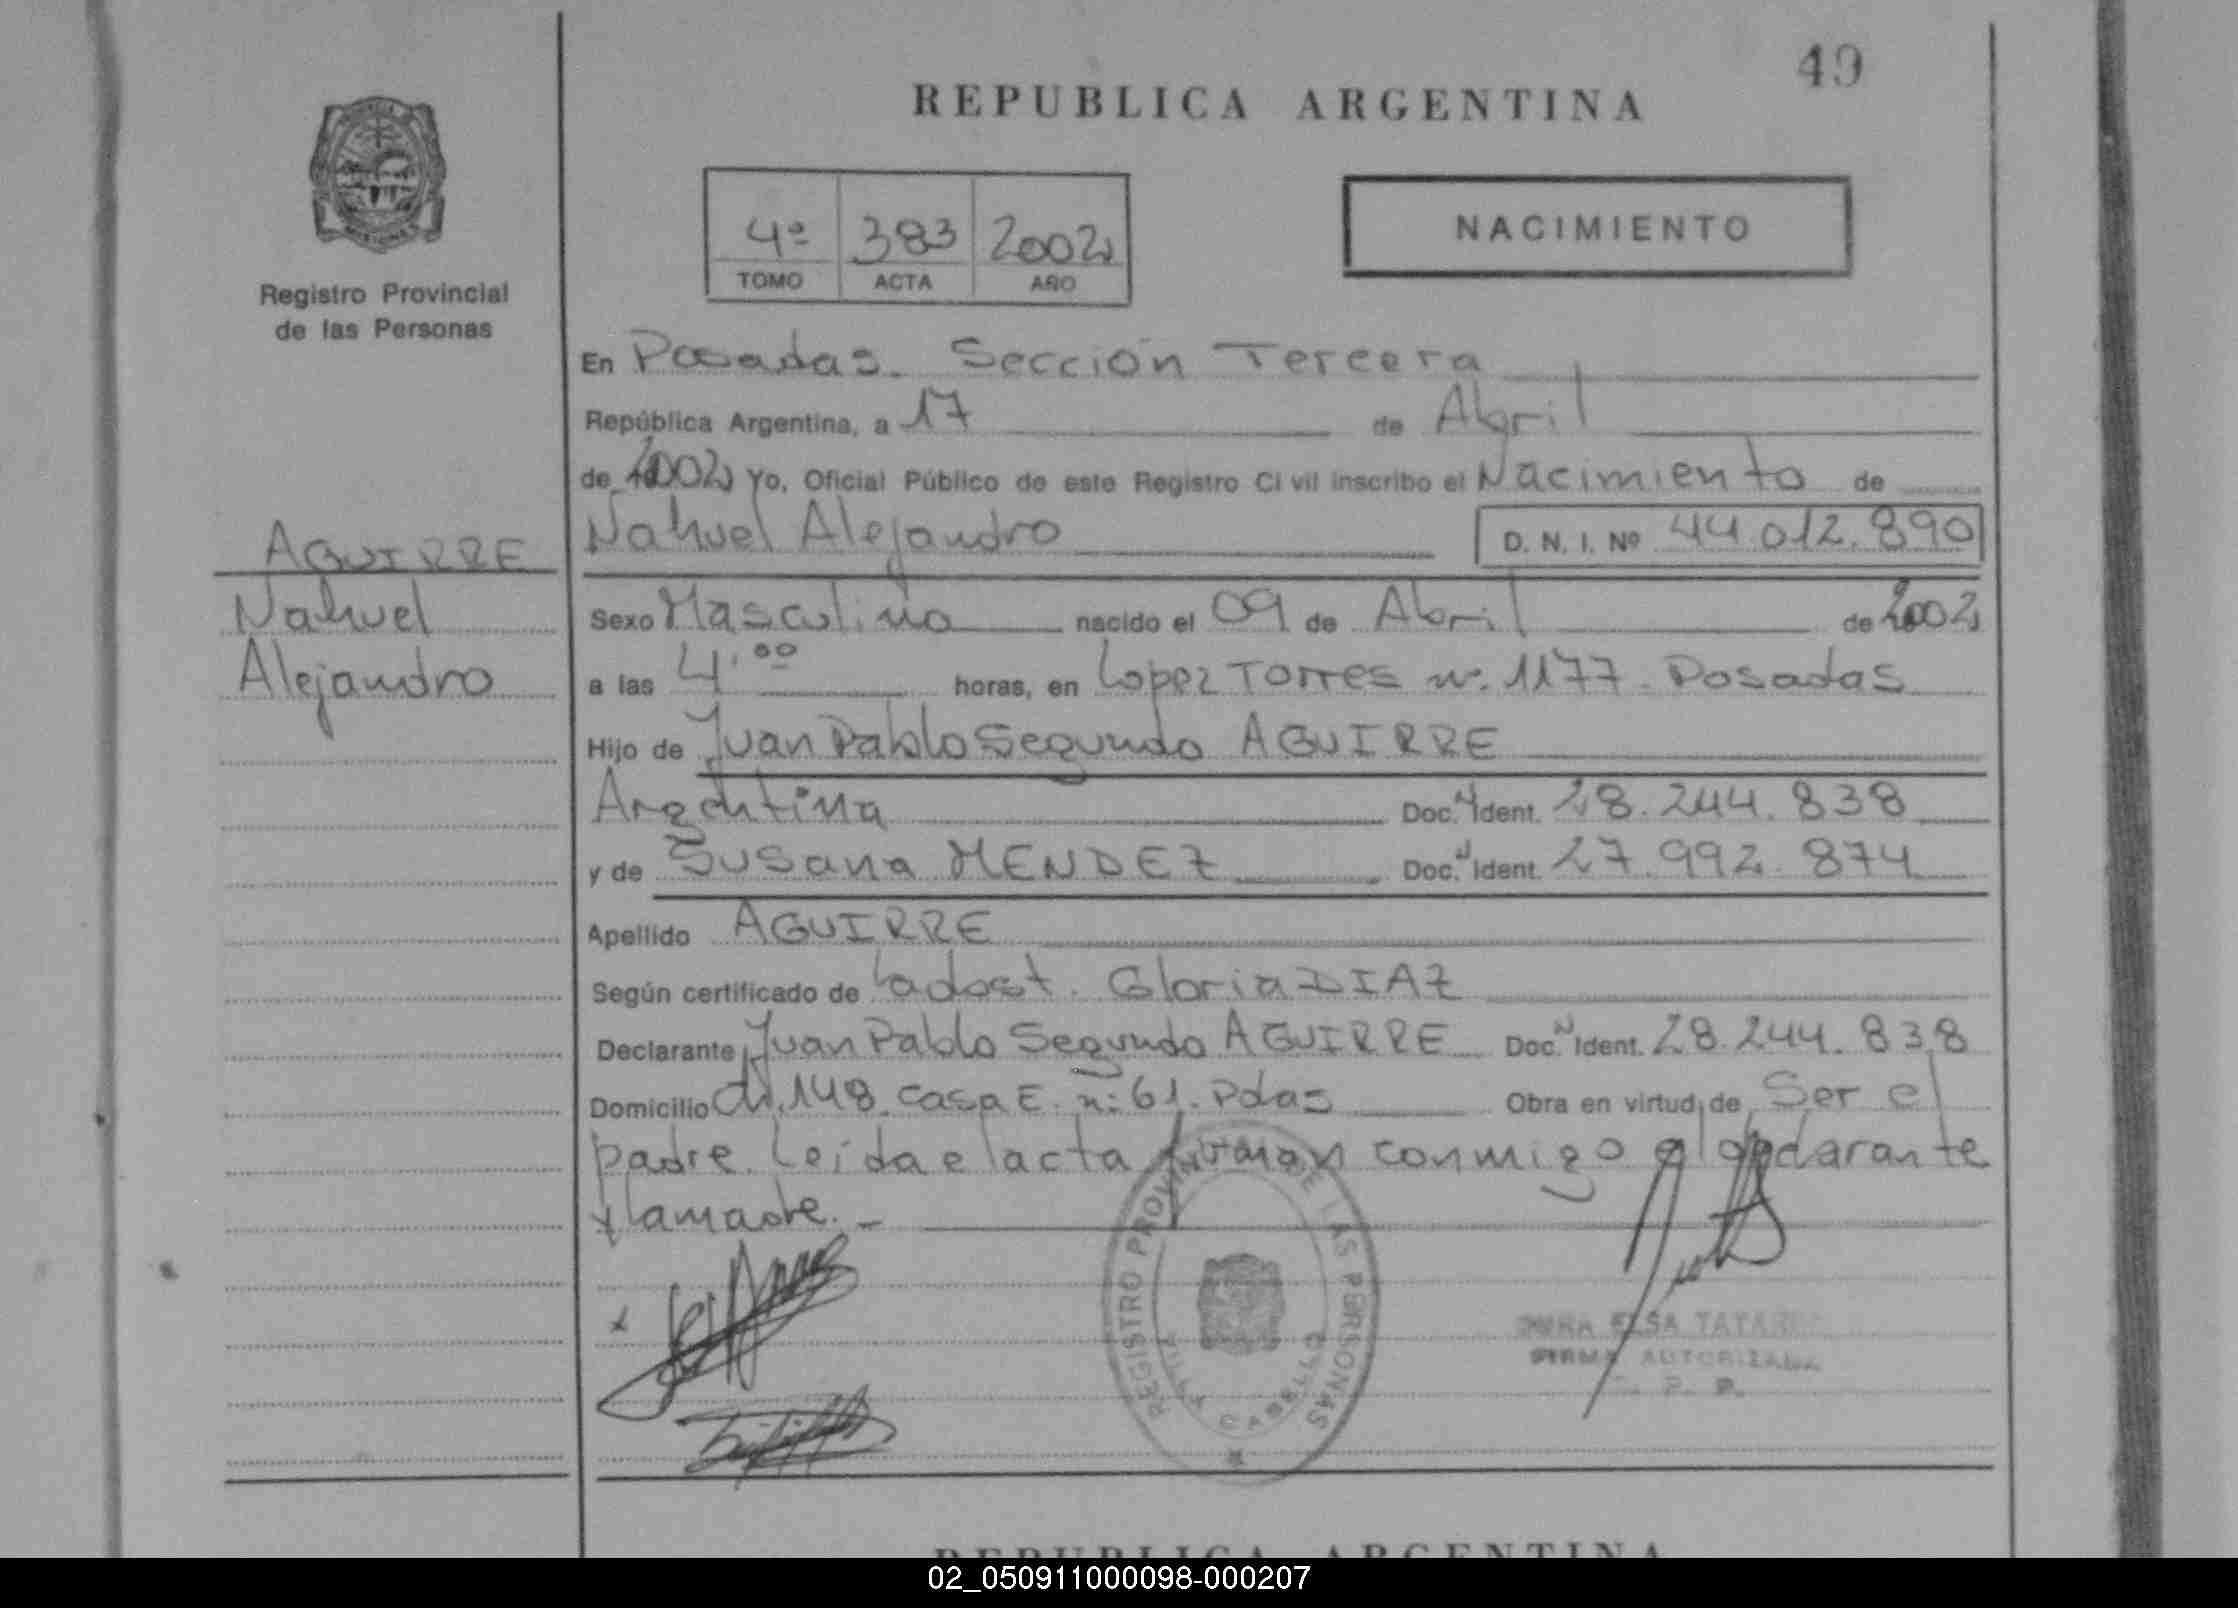 49
REPUBLICA ARGENTINA
4º 383 2002
TOMO ACTA AÑO
NACIMIENTO
Registro Provincial
de las Personas
En Posadas. Sección Tercera
República Argentina, a 17 de Abril
de 2002 Yo, Oficial Público de este Registro Civil inscribo el Nacimiento de
Nahuel Alejandro D. N. I. Nº 44.012.890
AGUIRRE
Nahuel
Alejandro
Sexo Masculino nacido el 09 de Abril de 2002
a las 4.00 horas, en Lopez Torres nº. 1177. Posadas
Hijo de Juan Pablo Segundo AGUIRRE
Argentina Doc. Ident. 28.244.838
y de Susana MENDEZ Doc. Ident. 27.992.874
Apellido AGUIRRE
Según certificado de Gloria DIAZ
Declarante Juan Pablo Segundo AGUIRRE Doc. Ident. 28.244.838
Domicilio ch. 148. casa E. nº 61. Pdas Obra en virtud de Ser el
padre. Leida el acta firman conmigo el declarante
y la madre. -
REGISTRO PROVINCIAL DE LAS PERSONAS
VILLA CABELLO
ELSA
FIRMA AUTORIZADA
R. P. P.
REPUBLICA ARGENTINA
02_050911000098-000207